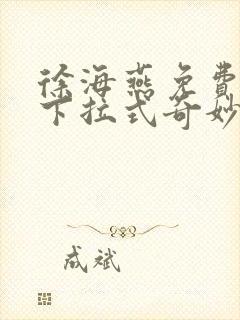 徐海燕免费
下拉式奇妙
成斌